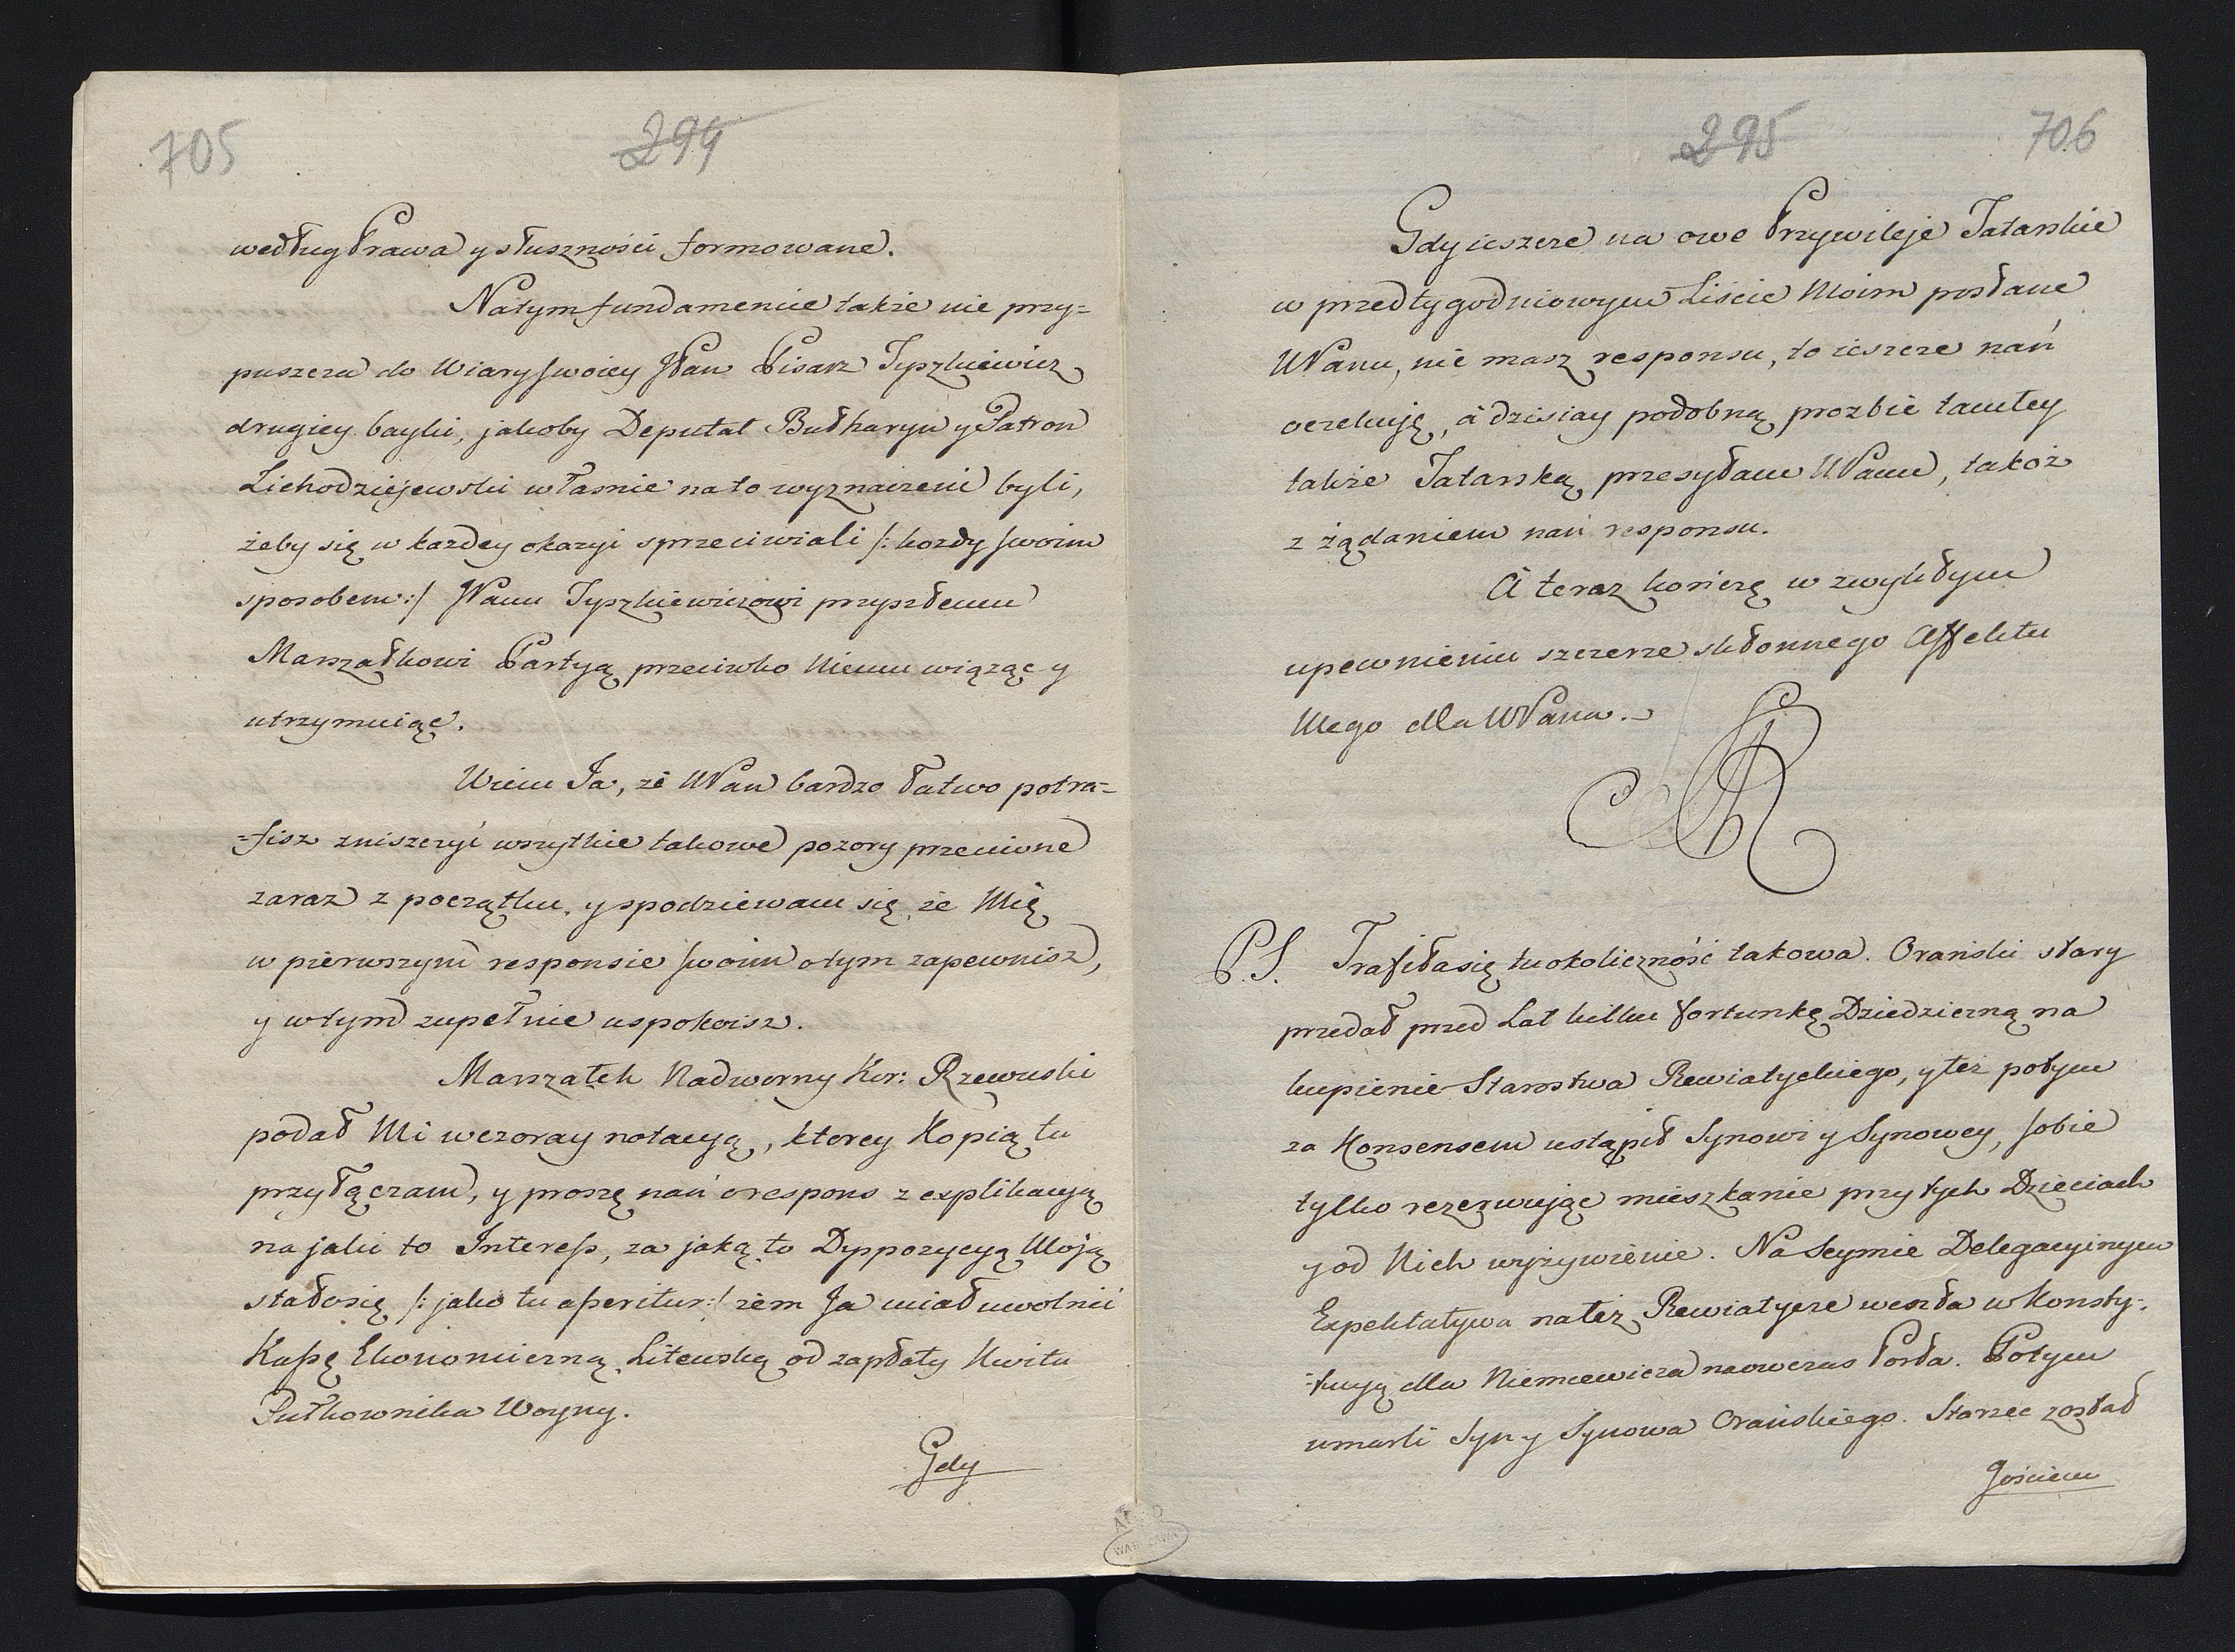 705
294
według Prawa y słuszności formowane.
Natym fundamencie także nie przy=
puszcza do Wiary swoiey JPan Pisarz Tyszkiewicz
drugiey bayki, jakoby Deputat Bułharyn y Patron
Lichodziejewski własnie na to wyznaczeni byli,
żeby się w każdey okazyi sprzeciwiali /: kożdy swoim
sposobem :/ JPanu Tyszkiewiczowi przyszłemu
Marszałkowi Partyą przeciwko Niemu wiążąc y
utrzymuiąc.
Wiem Ja, że WPan bardzo łatwo potra=
=fisz zniszczyć wszytkie takowe pozory przeciwne
zaraz z początku, y spodziewam się, że Mię
w pierwszym responsie swoim o tym zapewnisz,
y w tym zupełnie uspokoisz.
Marszałek Nadworny Kor: Rzewuski
podał Mi wczoray notacyą, ktorey Kopią tu
przyłączam, y proszę nań o respons z explikacyą
na jaki to Interess, za jaką to Dyspozycyą Moją
stało się /: jako tu asseritur :/ żem Ja miał uwolnić
Kassę Ekonomiczną Litewską od zapłaty Kwitu
Pułkownika Woyny.
Gdy
295
706
Gdy ieszcze na owe Przywileje Tatarskie
w przedtygodniowym Liście Moim posłane
WPanu, nie masz responsu, to ieszcze nań
oczekuję, à dzisiay podobną prozbie tamtey
także Tatarską przesyłam WPanu, takoż
z żądaniem nań responsu.
A teraz kończę w zwykłym
upewnieniu szczerze skłonnego Affektu
Mego dla WPana.
SAR
P.S. Trafiła się tu okoliczność takowa. Orański stary
przedał przed Lat kilku fortunkę Dziedziczną na
kupienie Starostwa Rewiatyckiego, y też potym
za Konsensem ustąpił Synowi y Synowey, sobie
tylko rezerwując mieszkanie przy tych Dzieciach
y od Nich wyżywienie. Na Seymie Delegacyinym
Expektatywa na też Rewiatycze weszła w Konsty=
=tucyą dla Niemcewicza naowczas Posła. Potym
umarli Syn y Synowa Orańskiego. Starzec został
Gościem